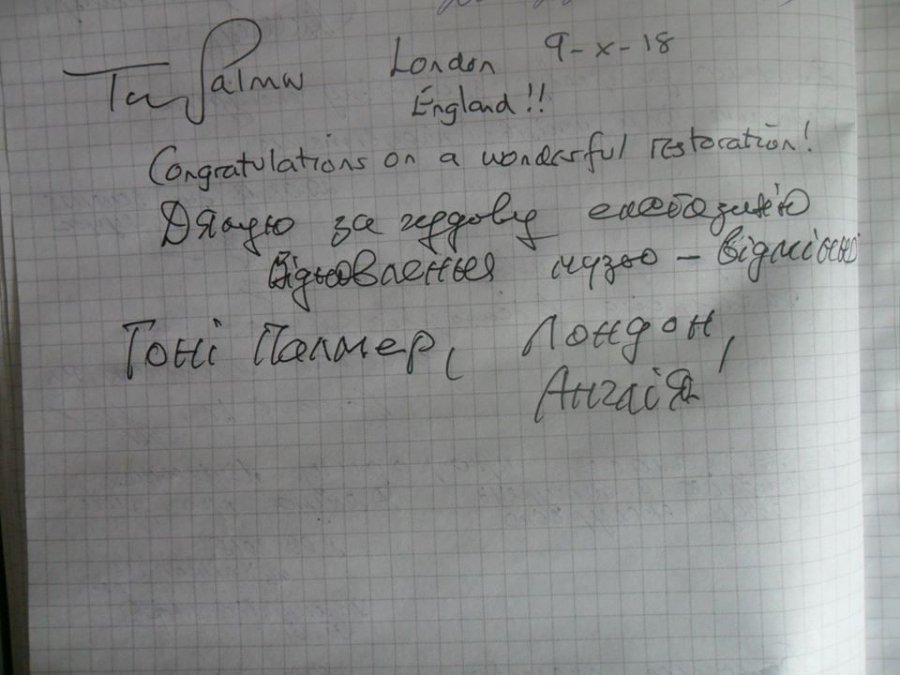 Tony Palmer London 9-X-18
England!!
Congratulations on a wonderful restoration!
Дякую за чудову експозицію
Відновлення музею – Відмінно
Тоні Палмер, Лондон,
Англія